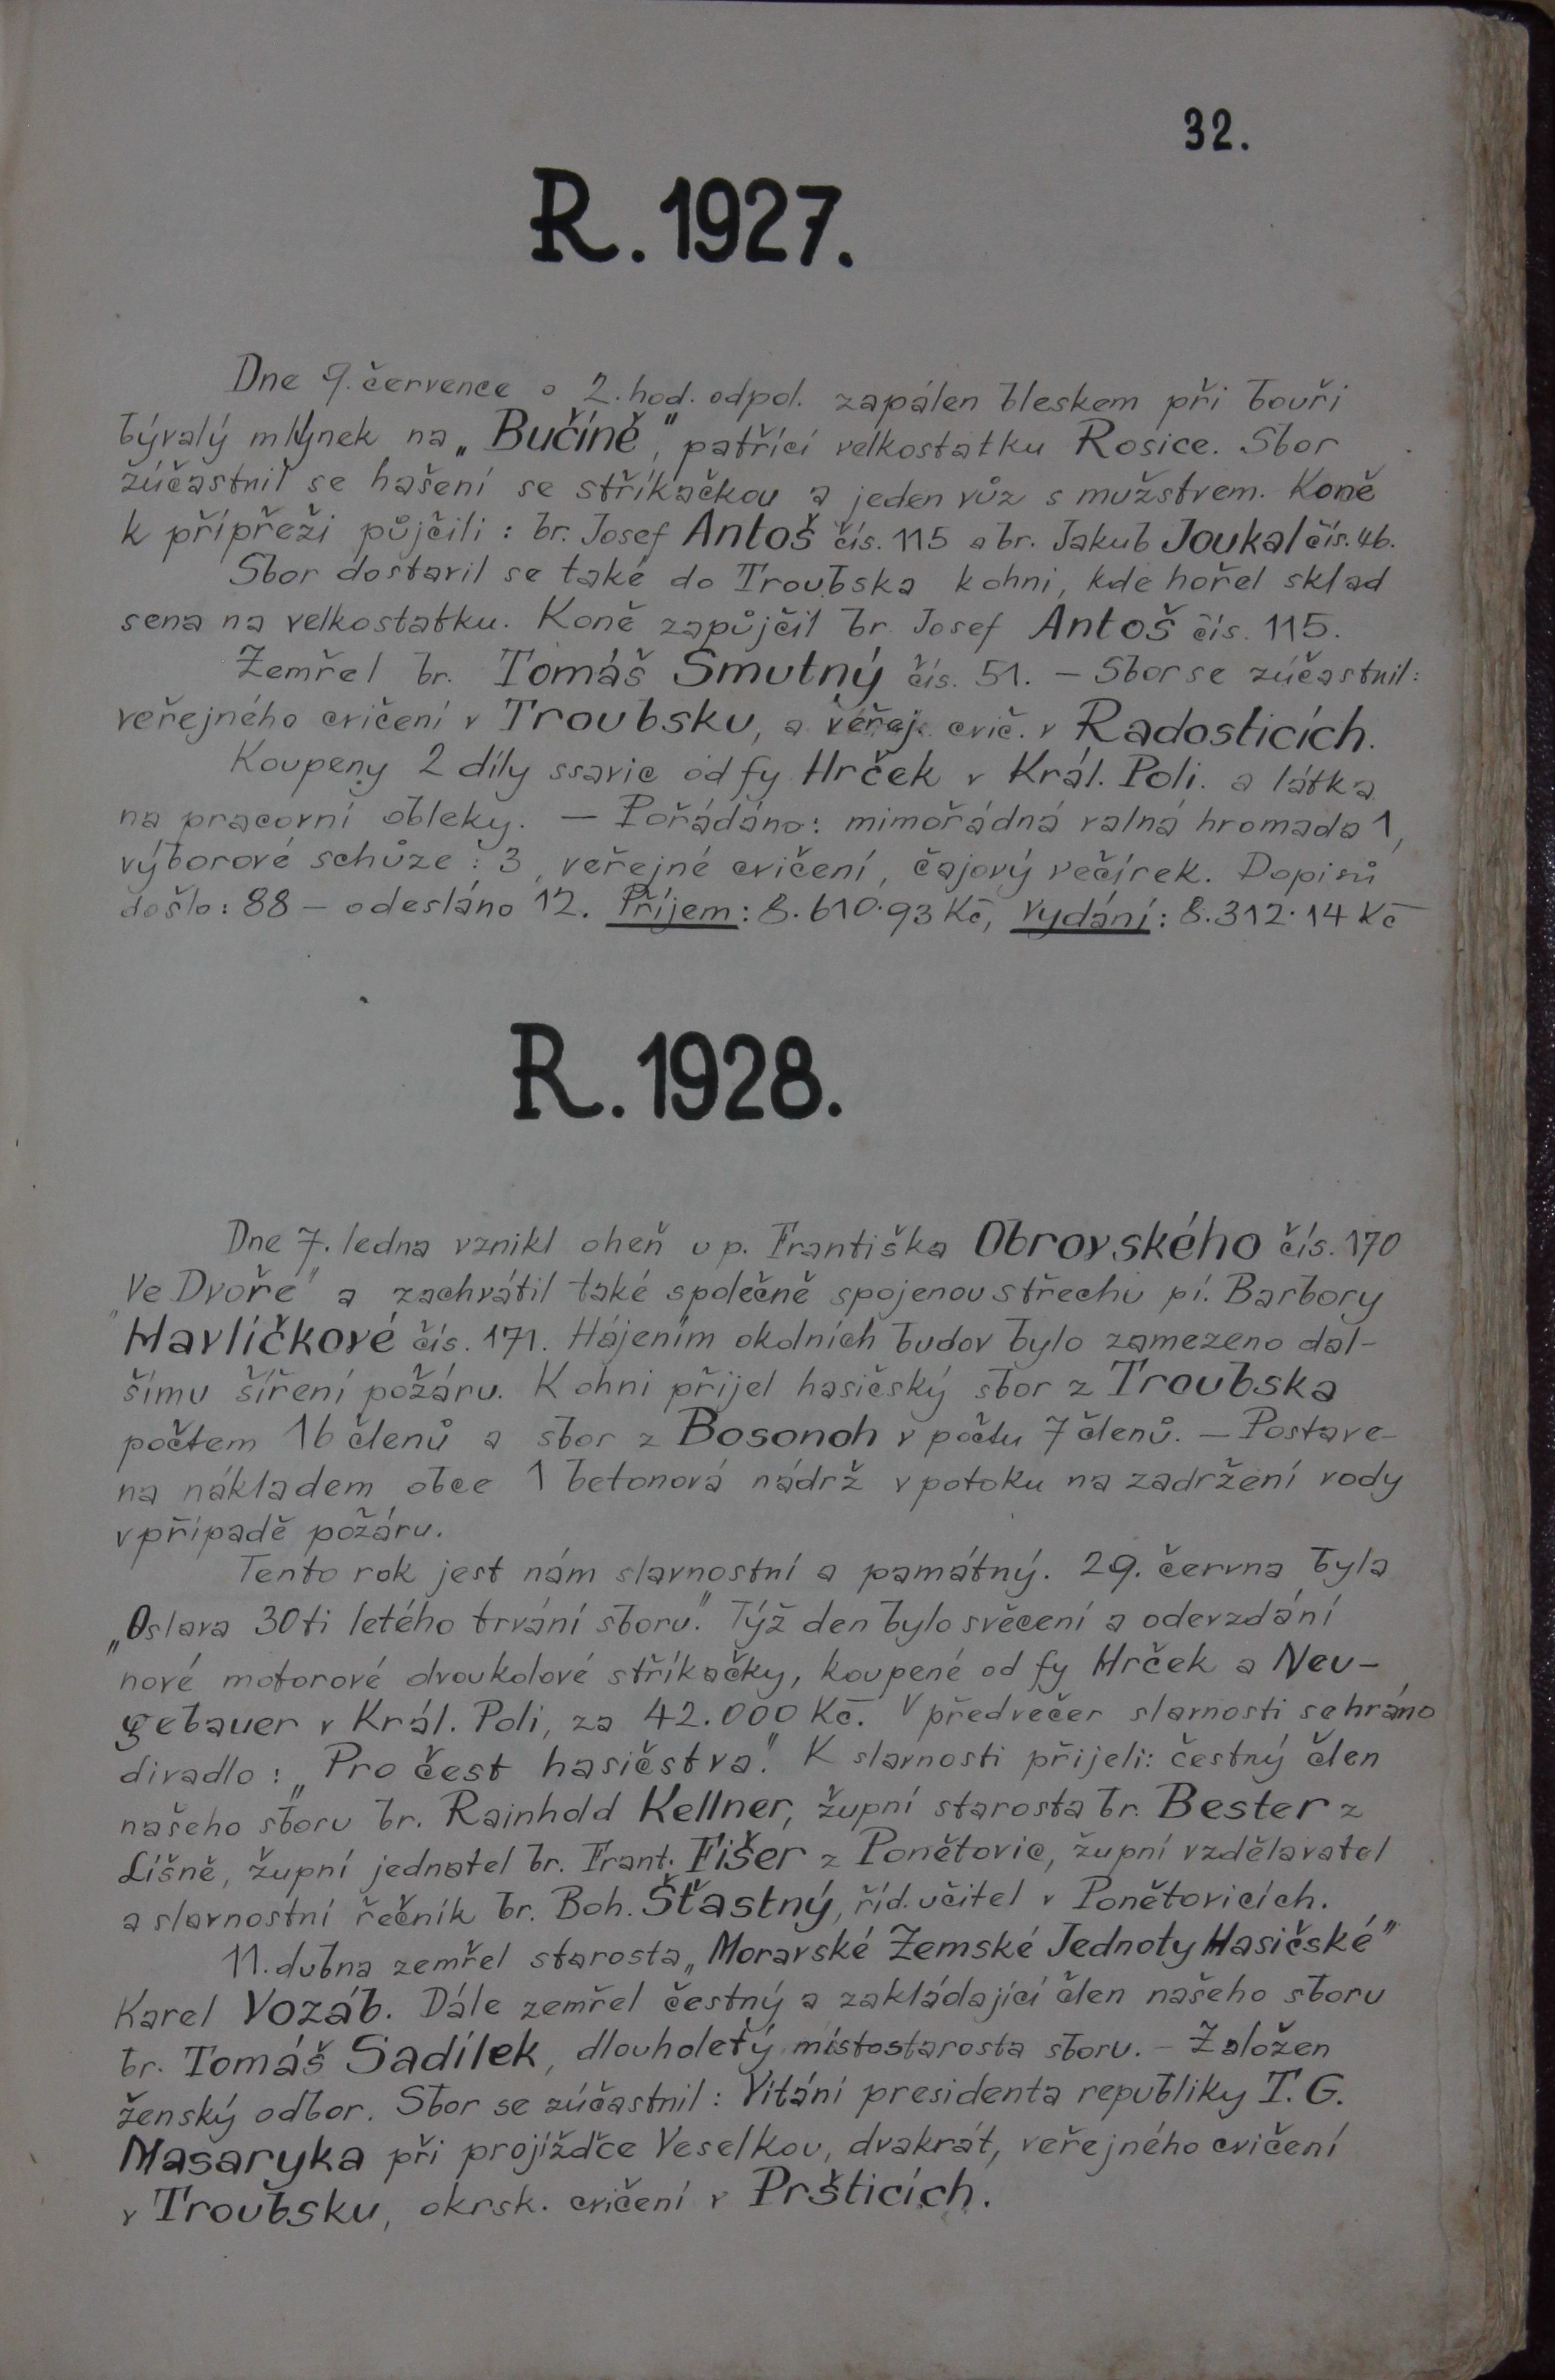 32.
R. 1927.
Dne 9. července o 2. hod. odpol. zapálen bleskem při bouři
bývalý mlýnek na „Bučíně“, patřící velkostatku Rosice. Sbor
zúčastnil se hašení se stříkačkou a jeden vůz s mužstvem. Koně
k přípřeži půjčili: br. Josef Antoš čís. 115 a br. Jakub Joukal čís. 46.
Sbor dostavil se také do Troubska k ohni, kde hořel sklad
sena na velkostatku. Koně zapůjčil br. Josef Antoš čís. 115.
Zemřel br. Tomáš Smutný čís. 51. – Sbor se zúčastnil:
veřejného cvičení v Troubsku, a veřej. cvič. v Radosticích.
Koupeny 2 díly ssavic od fy Hrček v Král. Poli. a látka
na pracovní obleky. – Pořádáno: mimořádná valná hromada 1,
výborové schůze: 3, veřejné cvičení, čajový večírek. Dopisů
došlo: 88 – odesláno 12. Příjem: 8.610·93 Kč, Vydání: 8.312·14 Kč
R. 1928.
Dne 7. ledna vznikl oheň u p. Františka Obrovského čís. 170
„Ve Dvoře“ a zachvátil také společně spojenou střechu pí. Barbory
Havlíčkové čís. 171. Hájením okolních budov bylo zamezeno dal-
šímu šíření požáru. K ohni přijel hasičský sbor z Troubska
počtem 16 členů a sbor z Bosonoh v počtu 7 členů. – Postave-
na nákladem obce 1 betonová nádrž v potoku na zadržení vody
v případě požáru.
Tento rok jest nám slavnostní a památný. 29. června byla
„Oslava 30ti letého trvání sboru“. Týž den bylo svěcení a odevzdání
nové motorové dvoukolové stříkačky, koupené od fy Hrček a Neu-
gebauer v Král. Poli, za 42.000 Kč. V předvečer slavnosti sehráno
divadlo: „Pro čest hasičstva“. K slavnosti přijeli: čestný člen
našeho sboru br. Rainhold Kellner, župní starosta br. Bester z
Líšně, župní jednatel br. Frant. Fišer z Ponětovic, župní vzdělavatel
a slavnostní řečník br. Boh. Šťastný, říd. učitel v Ponětovicích.
11. dubna zemřel starosta „Moravské Zemské Jednoty Hasičské“
Karel Vozáb. Dále zemřel čestný a zakládající člen našeho sboru
br. Tomáš Sadílek, dlouholetý místostarosta sboru. – Založen
ženský odbor. Sbor se zúčastnil: Vítání presidenta republiky T. G.
Masaryka při projížďce Veselkou, dvakrát, veřejného cvičení
v Troubsku, okrsk. cvičení v Pršticích.